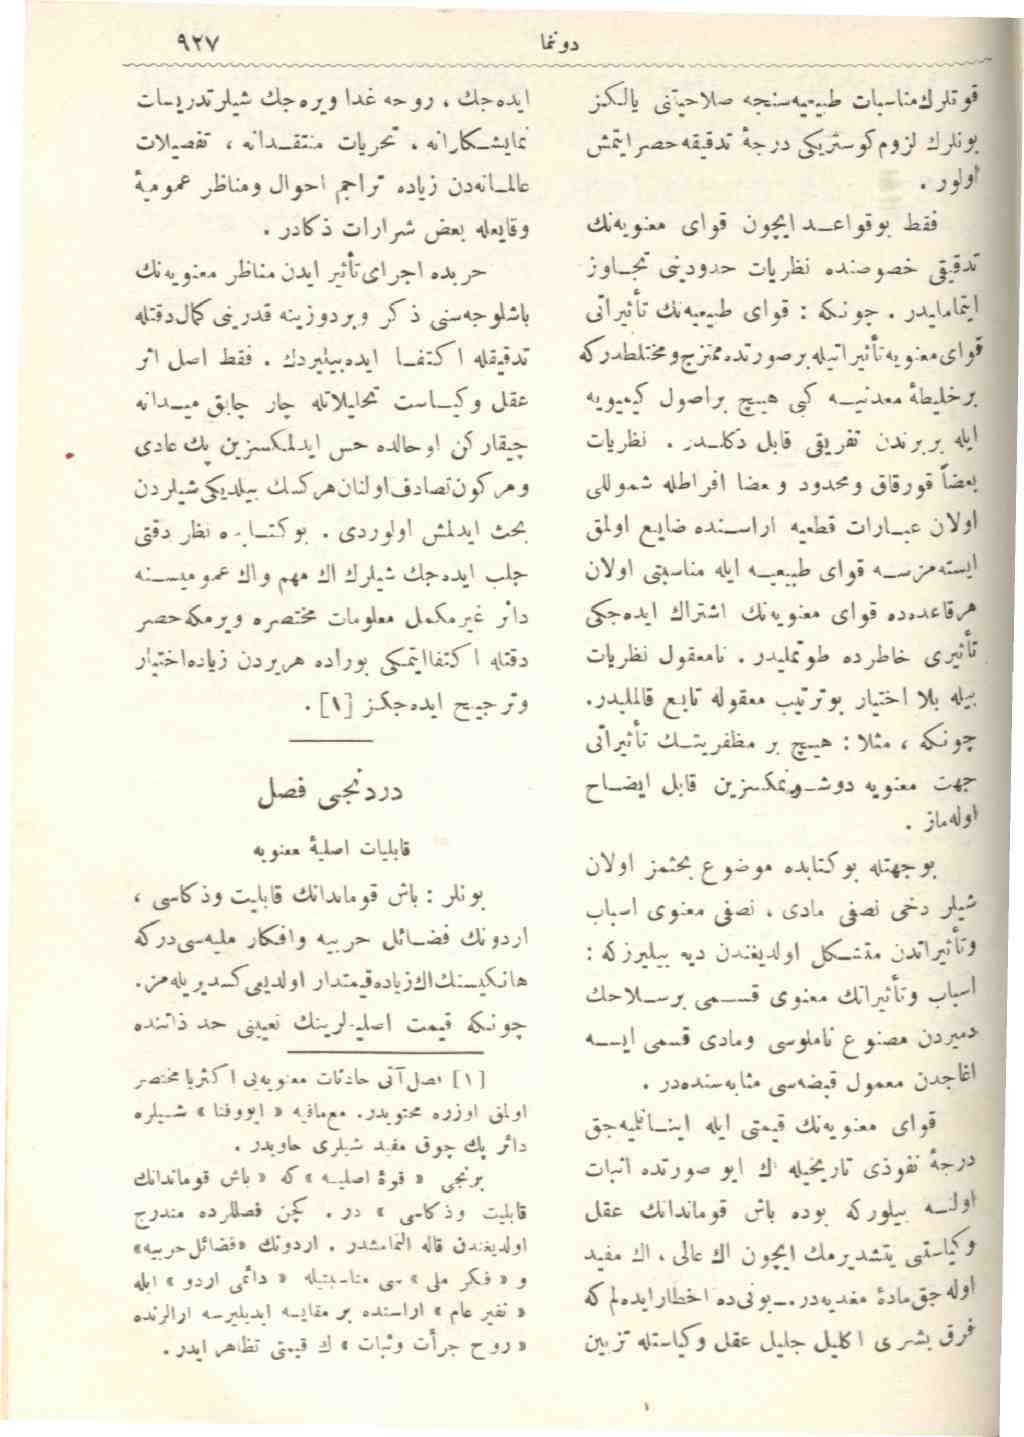 دوننما
٩٢٧
قوتلرك مناسبات طبيعيه‌سنجه صلاحيتنی يالكز
بونلرك لزوم كوستريكی درجهٔ تدقيقه حصر ايتمش
اولور .
فقط بو قواعد ايچون قوای معنويه‌نك
تدقيقی خصوصنده نظريات حدودينی تجاوز
ايتمامليدر . چونكه : قوای طبيعيه‌نك تأثيراتی
قوای معنويه تأثيراتيله بر صورتده ممتزج و مختلطدركه
بر خليطهٔ معدنيه كبی هيچ بر اصول كيميويه
ايله بربرندن تفريقی قابل دكلدر . نظريات
بعضاً قورقاق ومحدود وبعضا افراطله شموللی
اولان عبارات قطعيه اراسنده ضايع اولمق
ايسته‌مزسه قوای طبيعيه ايله مناسبتی اولان
هر قاعده‌ده قوای معنويه‌نك اشتراك ايده‌جكی
تأثيری خاطرده طوتمليدر . نامعقول نظريات
بيله بلا اختيار بو ترتيب معقوله تابع قالمليدر.
چونكه ، مثلا : هيچ بر مظفريتك تأثيراتی
جهت معنويه دوشونمكسزين قابل ايضاح
اوله‌ماز .
بو جهتله بو كتابده موضوع بحثمز اولان
شيلر دخی نصفی مادی ، نصفی معنوی اسباب
وتأثيراتدن متشكل اولديغندن ديه بيليرزكه :
اسباب وتأثيراتك معنوی قسمی بر سلاحك
دميردن مصنوع ناملوسی ومادی قسمی ايسه
اغاجدن معمول قبضه‌سی مثابه‌سنده‌در .
قوای معنويه‌نك قيمتی ايله اينانيله‌جق
درجهٔ نفوذی تاريخيله اك ايو صورتده اثبات
اولنه بيلوركه بوده باش قوماندانك عقل
وكياستنی يتشديرمك ايچون اك عالی، اك مفيد
اوله‌جق مادهٔ مغديه‌در. بونی ده اخطار ايده‌لم كه
فرق بشری اكليل جليل عقل وكياستله تزيين
ايده‌جك ، روحه غدا ويره‌جك شيلر تدريسات
نمايشكارانه ، تحريات منتقدانه ، تفصيلات
عالمانه‌دن زياده تراجم احوال ومناظر عموميهٔ
وقايعله بعض شرارات ذكادر .
حربده اجرای تأثير ايدن مناظر معنويه‌نك
باشلوجه‌سنی ذكر و بر دوزينه قدرينی كمال دقتله
تدقيقله اكتفا ايده‌بيليردك . فقط اصل اثر
عقل وكياست تحليلاتله چار چابق ميدانه
چيقاركن او حالده حس ايدلمكسزين پك عادی
وهركون تصادف اولنان هركسك بيلديكی شيلردن
بحث ايدلمش اولوردی . بو كتابده نظر دقتی
جلب ايده‌جك شيلرك اك مهم واك عموميسنه
دائر غير مكمل معلومات مختصره ويرمكه حصر
دقتله اكتفا ايتمكی بوراده هر يردن زياده اختيار
وترجيح ايده‌جكز [١] .
دردنجی فصل
قابليات اصليهٔ معنويه
بونلر : باش قوماندانك قابليت وذكاسی ،
اردونك فضائل حربيه وافكار مليه‌سی‌دركه
هانكيسنك اك زياده قيمتدار اولديغی كسديريله‌مز.
چونكه قيمت اصليه‌لرينك تعيينی حد ذاتنده
[١] فصل آتی حادثات معنويه‌يی اكثريا مختصر
اولمق اوزره محتويدر. مع‌مافيه « ايووقنا » شيلره
دائر پك چوق مفيد شيلری حاويدر .
برنجی « قوهٔ اصليه » كه « باش قوماندانك
قابليت وذكاسی » در . كچن فصللرده مندرج
اولديغندن قاله النمامشدر . اردونك «فضائل حربيه»
و « فكر ملی » سی مناسبتيله « دائمی اردو » ايله
« نفير عام » اراسنده بر مقايسه ايديليرسه ارالرنده
« روح جرأت وثبات » ك قيمتی تظاهر ايدر .